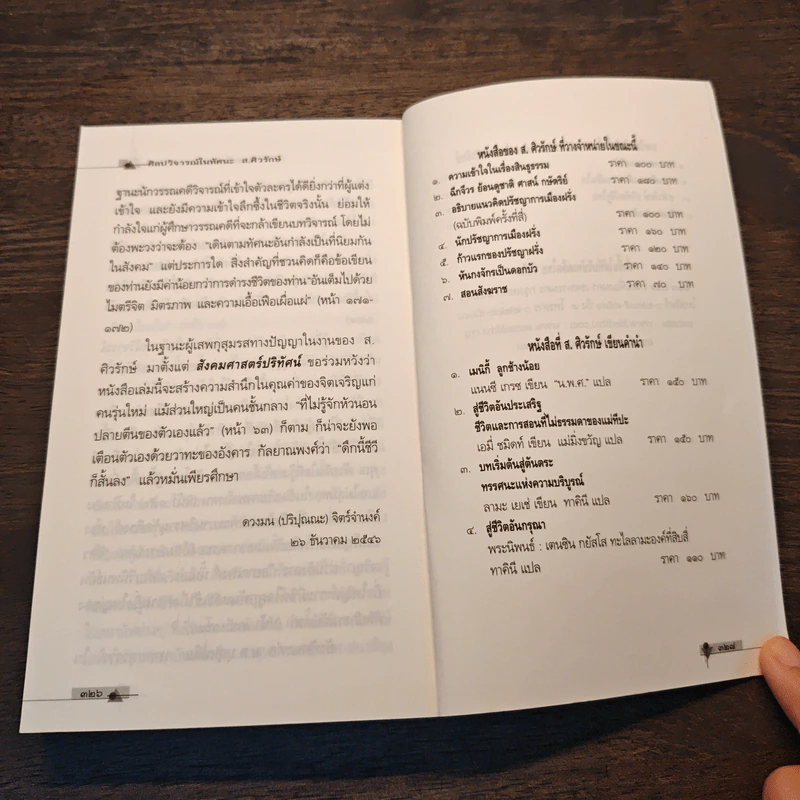 ศิลปวิจารณ์ในทัศนะ ส.ศิวรักษ์
ฐานะนักวรรณคดีวิจารณ์ที่เข้าใจตัวละครได้ดียิ่งกว่าที่ผู้แต่ง
เข้าใจ และยังมีความเข้าใจลึกซึ้งในชีวิตจริงนั้น ย่อมให้
กำลังใจแก่ผู้ศึกษาวรรณคดีที่จะกล้าเขียนบทวิจารณ์ โดยไม่
ต้องพะวงว่าจะต้อง "เดินตามทัศนะอันกำลังเป็นที่นิยมกัน
ในสังคม" แต่ประการใด สิ่งสำคัญที่ชวนคิดก็คือข้อเขียน
ของท่านยังมีค่าน้อยกว่าการดำรงชีวิตของท่าน "อันเต็มไปด้วย
ไมตรีจิต มิตรภาพ และความเอื้อเฟื้อเผื่อแผ่" (หน้า ๑๗๑-
๑๗๒)
ในฐานะผู้เสพกุสุมรสทางปัญญาในงานของ ส.
ศิวรักษ์ มาตั้งแต่ สังคมศาสตร์ปริทัศน์ ขอร่วมหวังว่า
หนังสือเล่มนี้จะสร้างความสำนึกในคุณค่าของจิตเจริญแก่
คนรุ่นใหม่ แม้ส่วนใหญ่เป็นคนชั้นกลาง "ที่ไม่รู้จักหัวนอน
ปลายตีนของตัวเองแล้ว" (หน้า ๖๓) ก็ตาม ก็น่าจะยังพอ
เตือนตัวเองด้วยวาทะของอังคาร กัลยาณพงศ์ว่า "ดึกนี้ชีวี
ก็สั้นลง" แล้วหมั่นเพียรศึกษา
ดวงมน (ปริปุณณะ) จิตร์จำนงค์
๒๖ ธันวาคม ๒๕๔๖
๓๒๖
หนังสือของ ส. ศิวรักษ์ ที่วางจำหน่ายในขณะนี้
๑. ความเข้าใจในเรื่องสินธุธรรม ราคา ๑๐๐ บาท
๒. ฉีกจีวร ย้อนดูชาติ ศาสน์ กษัตริย์ ราคา ๑๘๐ บาท
๓. อธิบายแนวคิดปรัชญาการเมืองฝรั่ง
(ฉบับพิมพ์ครั้งที่สี่) ราคา ๑๐๐ บาท
๔. นักปรัชญาการเมืองฝรั่ง ราคา ๑๖๐ บาท
๕. ก้าวแรกของปรัชญาฝรั่ง ราคา ๑๒๐ บาท
๖. หันกงจักรเป็นดอกบัว ราคา ๑๔๐ บาท
๗. สอนสังฆราช ราคา ๗๐ บาท
หนังสือที่ ส. ศิวรักษ์ เขียนคำนำ
๑. เมนิกี้ ลูกช้างน้อย
แนนซี เกรซ เขียน "น.พ.ศ." แปล ราคา ๑๕๐ บาท
๒. สู่ชีวิตอันประเสริฐ
ชีวิตและการสอนที่ไม่ธรรมดาของแม่ทีปะ
เอมี่ ชมิดท์ เขียน แม่มิ่งขวัญ แปล ราคา ๑๕๐ บาท
๓. บทเริ่มต้นสู่ตันตระ
ทรรศนะแห่งความบริบูรณ์
ลามะ เยเช่ เขียน ทาคินี แปล ราคา ๑๖๐ บาท
๔. สู่ชีวิตอันกรุณา
พระนิพนธ์ : เตนซิน กยัสโส ทะไลลามะองค์ที่สิบสี่
ทาคินี แปล ราคา ๑๑๐ บาท
๓๒๘